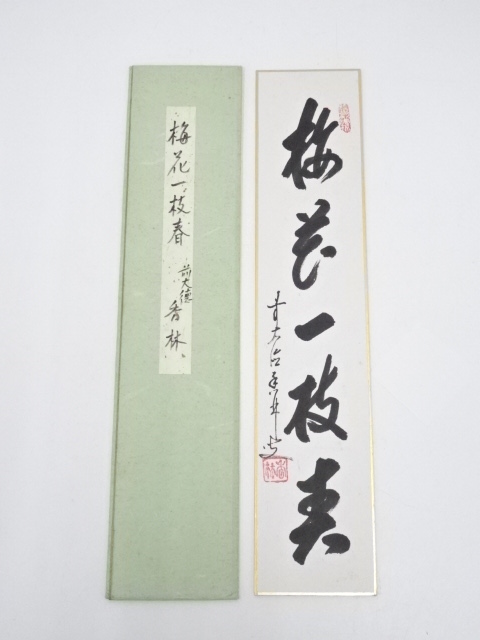 梅花一枝春
前大徳
香林
梅花一枝春